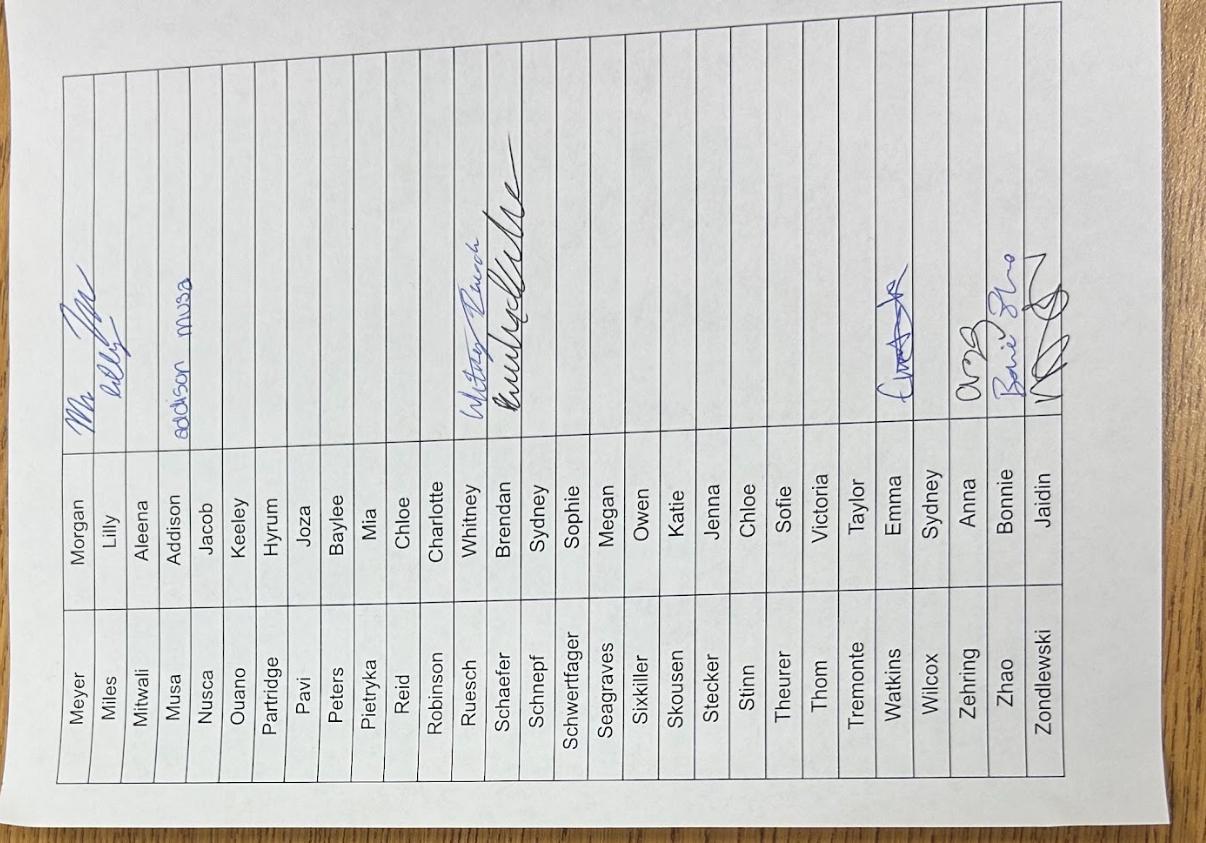 Meyer Morgan
Miles Lilly Lilly
Mitwali Aleena
Musa Addison addison musa
Nusca Jacob
Ouano Keeley
Partridge Hyrum
Pavi Joza
Peters Baylee
Pietryka Mia
Reid Chloe
Robinson Charlotte
Ruesch Whitney Whitney Ruesch
Schaefer Brendan
Schnepf Sydney
Schwertfager Sophie
Seagraves Megan
Sixkiller Owen
Skousen Katie
Stecker Jenna
Stinn Chloe
Theurer Sofie
Thom Victoria
Tremonte Taylor
Watkins Emma
Wilcox Sydney
Zehring Anna
Zhao Bonnie
Zondlewski Jaidin